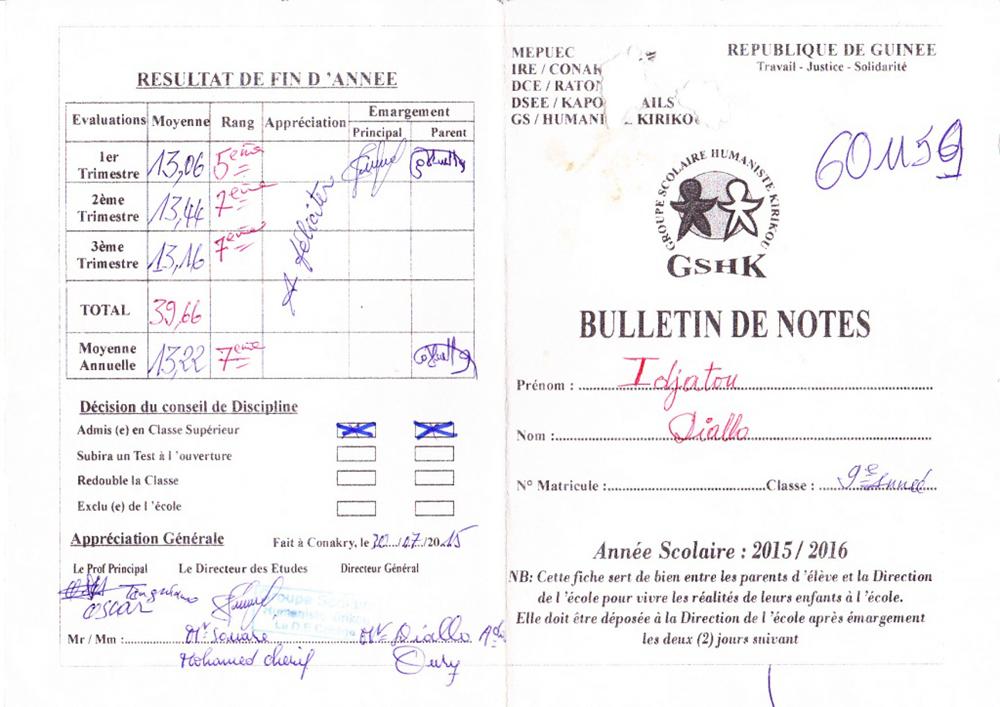 RESULTAT DE FIN D 'ANNEE
Evaluations Moyenne Rang Appréciation Emargement
Principal Parent
1er Trimestre 13,06 5ème
2ème Trimestre 13,44 7ème
3ème Trimestre 13,16 7ème
A féliciter
TOTAL 39,66
Moyenne Annuelle 13,22 7ème
Décision du conseil de Discipline
Admis (e) en Classe Supérieur
Subira un Test à l 'ouverture
Redouble la Classe
Exclu (e) de l 'école
Appréciation Générale
Fait à Conakry, le 20.../.07../20.15
Le Prof Principal Le Directeur des Etudes Directeur Général
Oscar
Mr / Mm :
Mr Diallo
Mohamed Chérif Oury
MEPUEC
IRE / CONAK
DCE / RATO
DSEE / KAPO AILS
GS / HUMANI KIRIKO
REPUBLIQUE DE GUINEE
Travail - Justice - Solidarité
601159
GROUPE SCOLAIRE HUMANISTE KIRIKOU
GSHK
BULLETIN DE NOTES
Prénom : Idjatou
Nom : Diallo
N° Matricule : Classe : 9e Année
Année Scolaire : 2015 / 2016
NB: Cette fiche sert de bien entre les parents d 'élève et la Direction
de l 'école pour vivre les réalités de leurs enfants à l 'école.
Elle doit être déposée à la Direction de l 'école après émargement
les deux (2) jours suivant